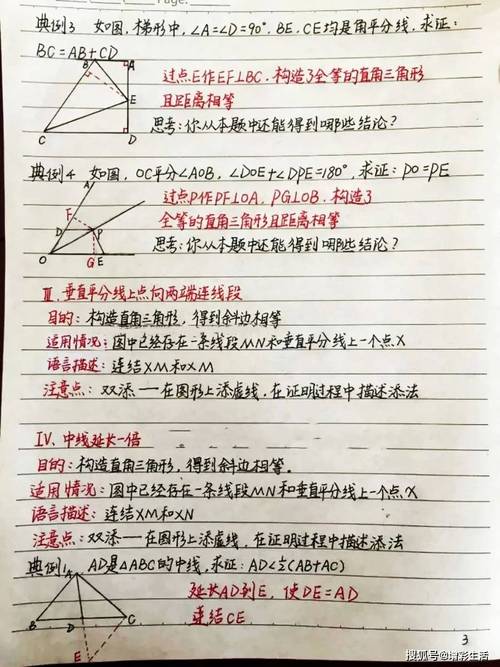 Page:
典例3 如图,梯形中,∠A=∠D=90°,BE、CE均是角平分线,求证:
BC=AB+CD
过点E作EF⊥BC,构造了全等的直角三角形
且距离相等
思考:你从本题中还能得到哪些结论?
B A
E
C D
典例4 如图,OC平分∠AOB,∠DOE+∠DPE=180°,求证:PD=PE
过点P作PF⊥OA,PG⊥OB,构造了
全等的直角三角形且距离相等
思考:你从本题中还能得到哪些结论?
A
F
D P
O G E
Ⅲ、垂直平分线上点向两端连线段
目的:构造直角三角形,得到斜边相等
适用情况:图中已经存在一条线段MN和垂直平分线上一个点X
语言描述:连结XM和XM
注意点:双添——在图形上添虚线,在证明过程中描述添法
Ⅳ、中线延长一倍
目的:构造直角三角形,得到斜边相等。
适用情况:图中已经存在一条线段MN和垂直平分线上一个点X
语言描述:连结XM和XN
注意点:双添——在图形上添虚线,在证明过程中描述添法
典例1 AD是△ABC的中线,求证:AD<½(AB+AC)
延长AD到E,使DE=AD
连结CE
A
B D C
E
3
搜狐号@增彩生活